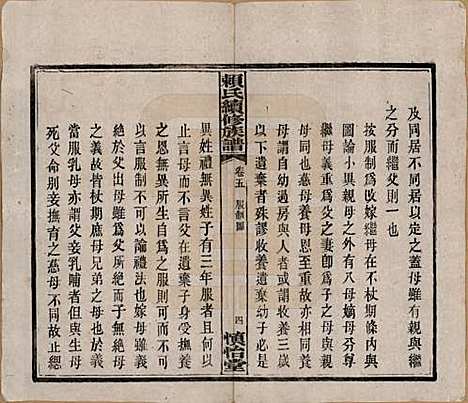 及同居不同居以定之蓋母雖有親與繼
之分而繼父則一也
按服制爲改嫁繼母在不杖期條内與
圖論小異親母之外有八母嫡母與繼
母義重爲父之妻卽爲子之母與親
母同也慈母養母恩至重故亦相同養
母謂自幼過房與人者或謂收養三歲
以下遺棄者殊謬收養遺棄幼子必是
賴氏續修族譜
卷五
服制圖
四
慎怡堂
異姓禮無異姓子有三年服者出則受撫養
之恩無異所生自
止一母而不言父在遺棄子身受撫養
言以服制則可而不可
以恩制不可以論禮法也嫁母雖義
絕於父出母雖爲父所絕而于無絕母
之義故皆杖期庶母兄弟之母也於義
當服乳母亦謂父妾乳哺者但與生母
死父命别妾撫育之慈母不同故止緦